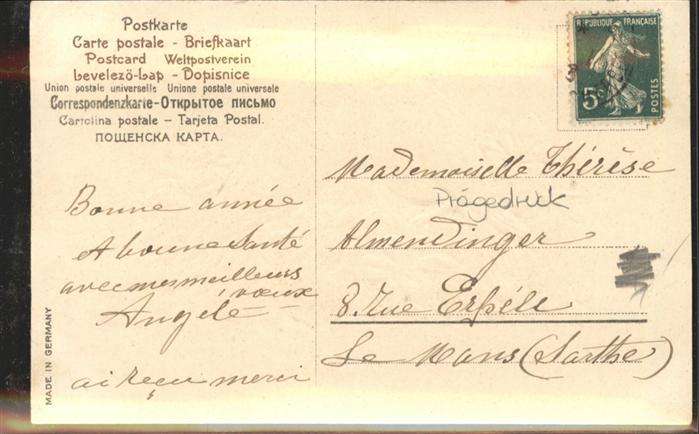 Postkarte
Carte postale - Briefkaart
Postcard Weltpostverein
Levelező-Lap - Dopisnice
Union postale universelle Unione postale universale
Correspondenzkarte - Открытое письмо
Cartolina postale - Tarjeta Postal.
ПОЩЕНСКА КАРТА.
REPUBLIQUE FRANÇAISE
5c
POSTES
Bonne année
et bonne Santé
avec mes meilleurs
vœux
Angèle
ai reçu merci
MADE IN GERMANY
Mademoiselle Thérèse
Prägedruck
Almendinger
8 Rue
Le Mans (Sarthe)